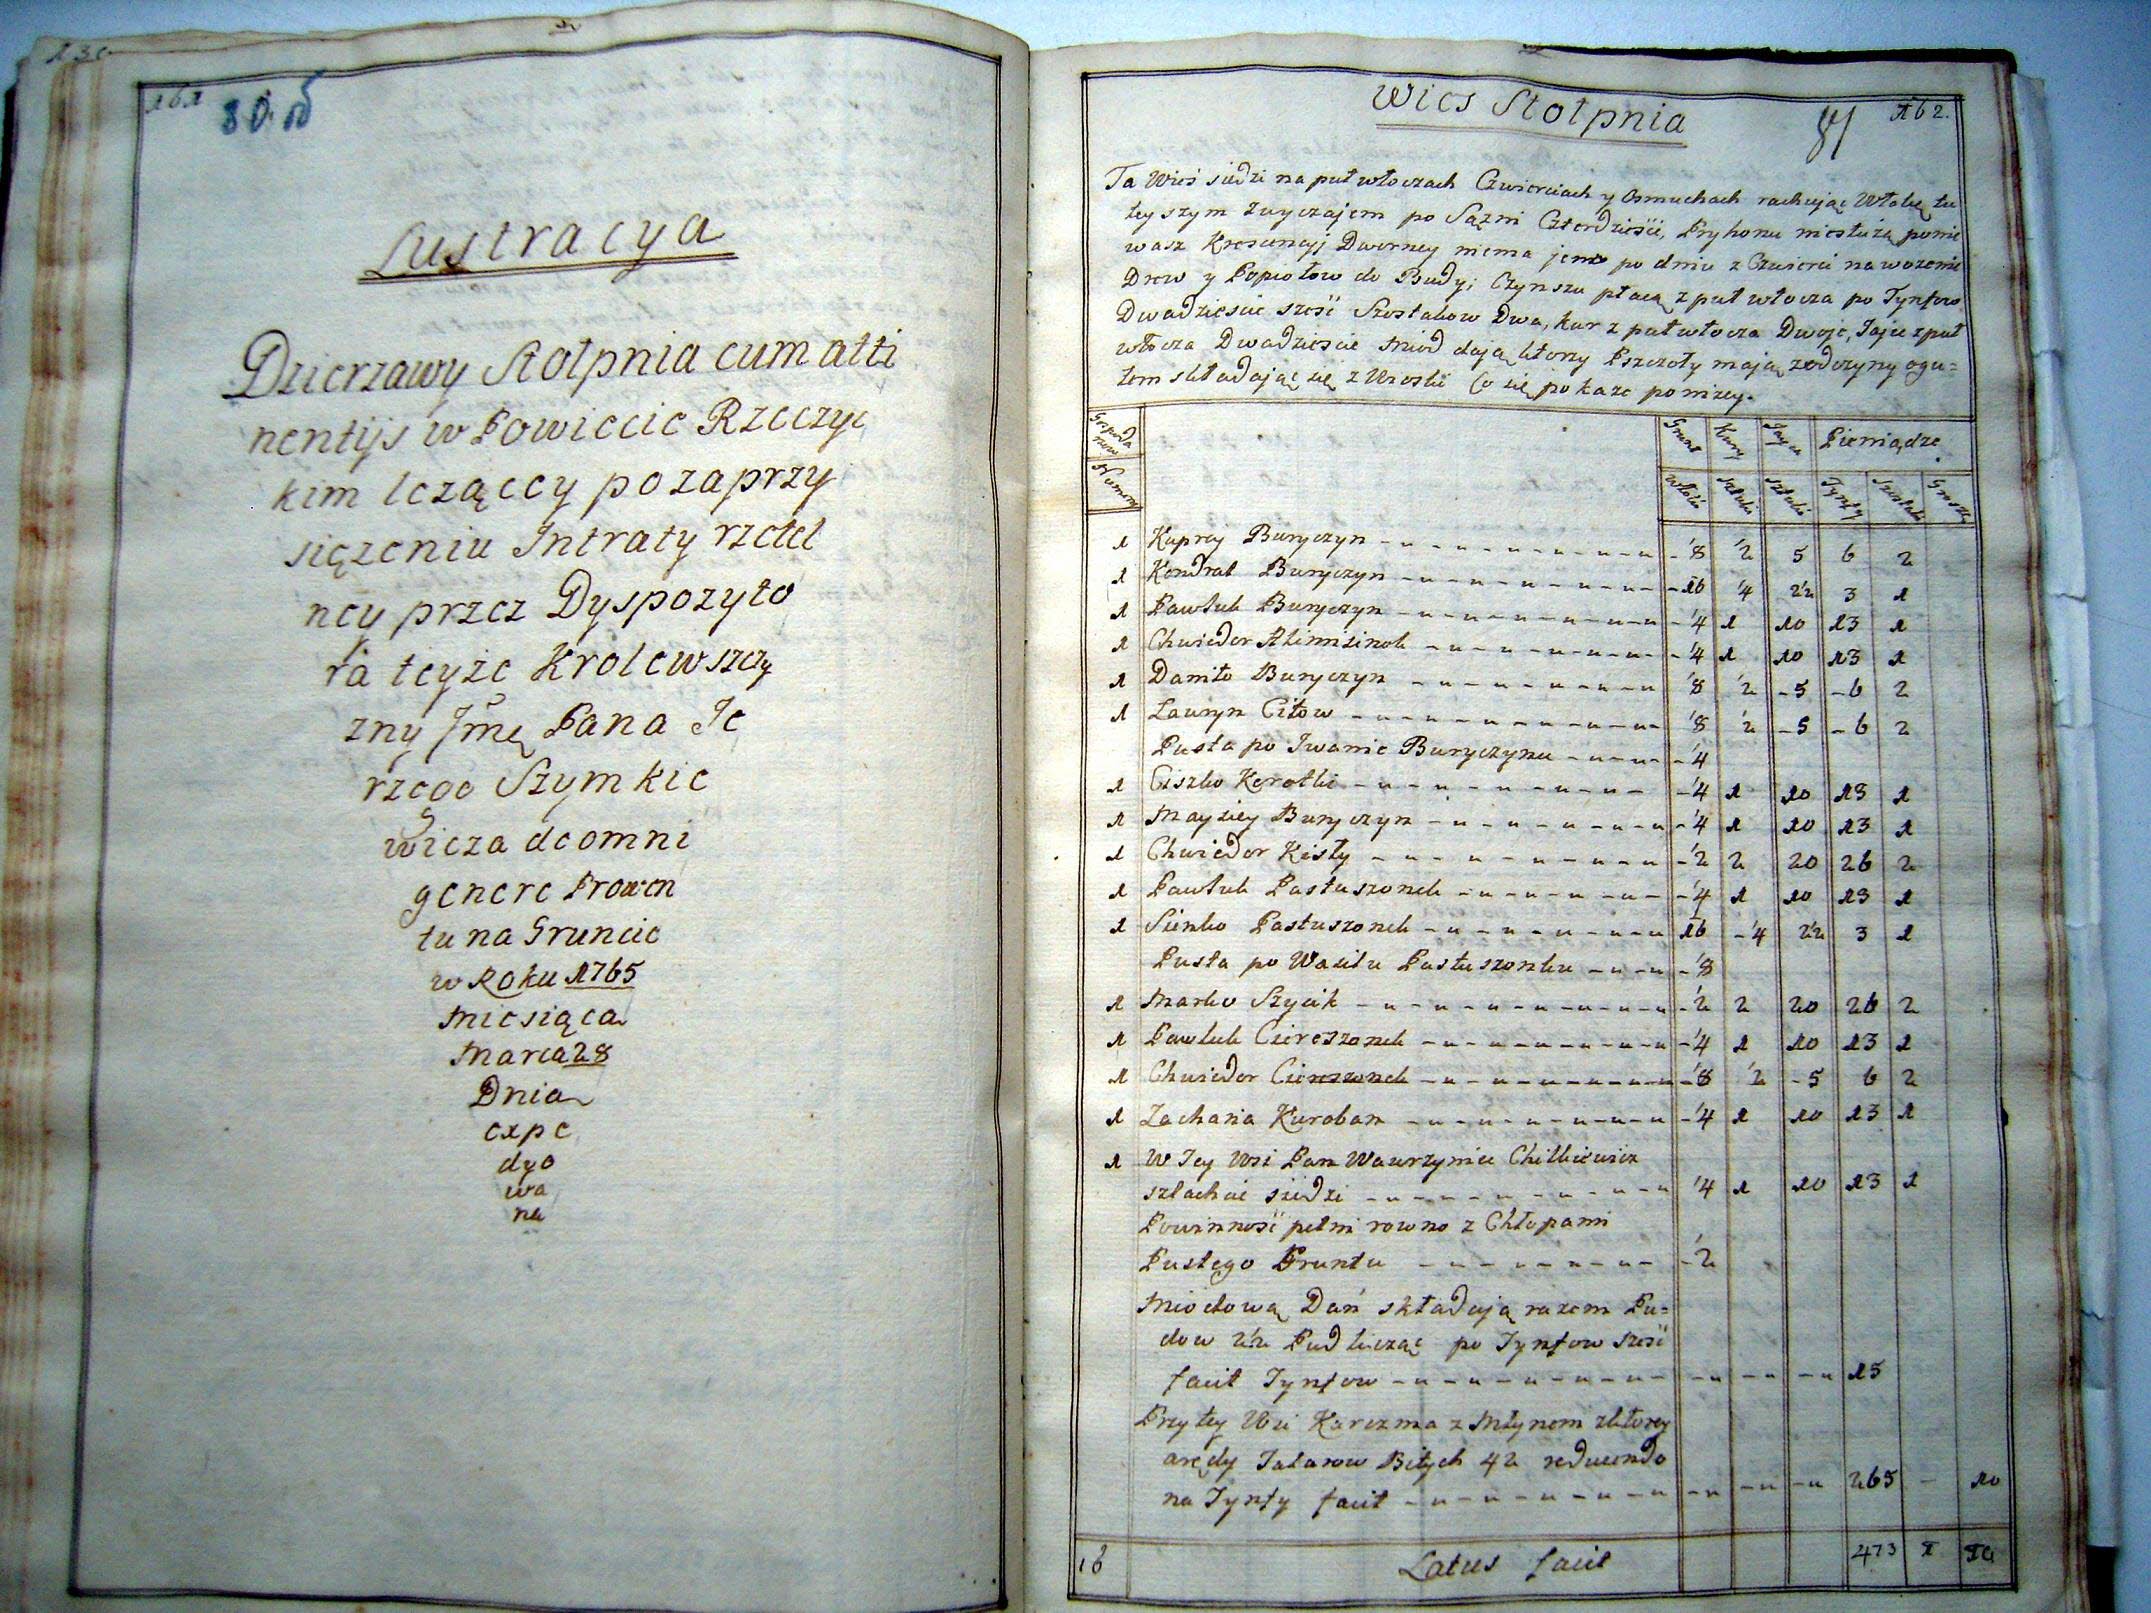 161
80 об
Lustracya
Dzierzawy Stołpnia cum atti
nentijs w Powiecie Rzeczyc
kim lezącey po zaprzy
siężeniu Intraty rzetel
ney przez Dyspozyto
ra teyże Krolewszczy
zny Jmę Pana Je
rzego Szymkie
wicza de omni
genere Prowen
tu na Gruncie
w Roku 1765
Miesiąca
Marca 28
Dnia
expe
dyo
wa
na
Wies Stołpnia
81
162.
Ta Wieś siedzi na puł włoczach Czwierciach y Osmuchach rachując Włokę tu
teyszym zwyczajem po Sążni Czterdzieści, Pryhonu niesłużą ponie
waż Krescencyj Dworney niema jeno po dniu z Czwierci na wozenie
Drew y Popiołow do Budy; Czynszu płacą z puł włocza po Tynfow
Dwadzieście sześć Szostakow Dwa, kur z pułwłocza Dwoje, Jaje z puł
włocza Dwadzieście Miod dają ktorzy Pszczoły mają zedczyny ogu=
łem składając się z Wioski Co się pokaze ponizey.
Gospoda
rzow
Numery
Grunt Kury Jayca Pieniądze
Włoki sztuki sztuki Tynfy Szostaki Grosze
1 Kuprey Buryczyn 8 2 5 6 2
1 Kondrat Buryczyn 16 4 2 2 3 1
1 Pawluk Buryczyn 4 1 10 13 1
1 Chwiedor Aktimisinok 4 1 10 13 1
1 Daniło Buryczyn 8 2 5 6 2
1 Lauryn Citow 8 2 5 6 2
Pusta po Iwanie Buryczynu 4
1 Ciszko Korotki 4 1 10 13 1
1 Maysiey Buryczyn 4 1 10 13 1
1 Chwiedor Kisły 2 2 20 26 2
1 Pawluk Pastuszonek 4 1 10 13 1
1 Sienko Pastuszonek 16 4 2 2 3 1
Pusta po Wasilu Pastuszonku 8
1 Marko Szycik 2 2 20 26 2
1 Pawluk Ciereszonek 4 1 10 13 1
1 Chwiedor Ciereszonek 8 2 5 6 2
1 Zacharia Kuroban 4 1 10 13 1
1 W Tey Wsi Pan Wawrzyniec Chilkiewicz
szlachcic siedzi 4 1 10 13 1
Powinność pełni rowno z Chłopami
Pustego Gruntu 2
Miodową Dań składają razem Pu=
dow 2 1/2 Pud licząc po Tynfow sześć
facit Tynfow 15
Przy tey Wsi Karczma z Młynem z ktorey
arędy Talarow Bitych 42 reducendo
na Tynfy facit 265 10
16 Latus facit 473 1 10